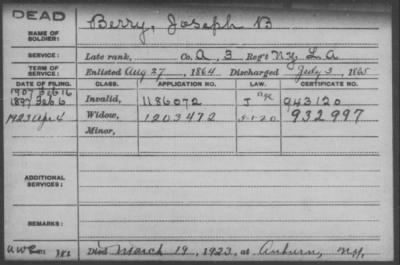 DEAD
NAME OF SOLDIER: Berry, Joseph B
SERVICE: Late rank, Co. A, 3 Reg't N.Y. L. A
TERM OF SERVICE: Enlisted Aug 27, 1864 Discharged July 3, 1865
DATE OF FILING. CLASS. APPLICATION NO. LAW. CERTIFICATE NO.
1907
1897 Feb 6 Invalid, 1186072 J age 943120
1923 Apr 4 Widow, 1203472 5-1-20 932997
Minor,
ADDITIONAL SERVICES:
REMARKS:
Died March 19, 1923, at Auburn, N.Y.